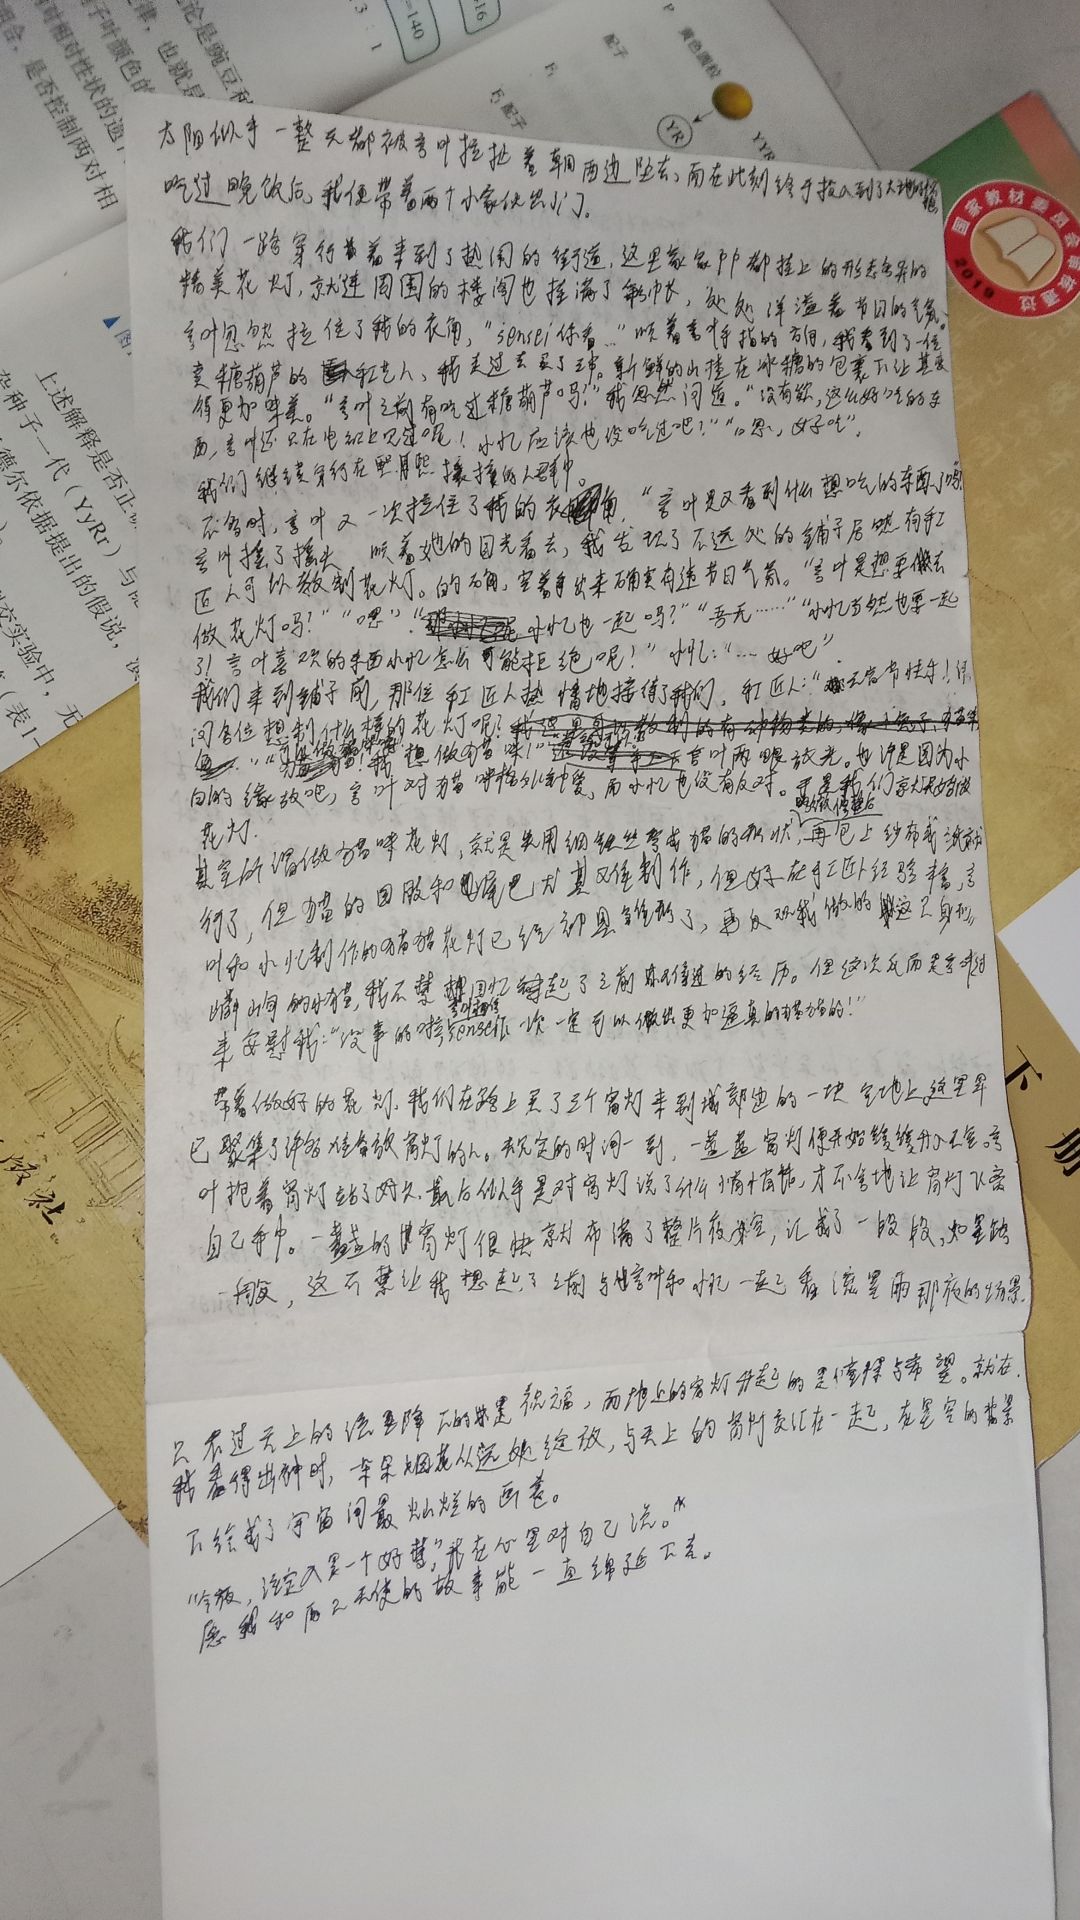 论是豌豆种
律，也就是
子叶颜色的
对相对性状的遗
合，是否控制两对相
3 : 1
=140
=16
P
黄色圆粒
配子
F₁
F₁配子
YR
YYR
国家教材委员会
审核通过
2019
上述解释是否正
杂种子一代（YyRr）与
德尔依据提出的假说，
交实验中，无
（表1-
版社
下
册
太阳似乎一整天都被言叶拉扯着朝西边坠去，而在此刻终于投入到了大地的
吃过晚饭后，我便带着两个小家伙出了门。
我们一路穿行着来到了热闹的街道，这里家家户户都挂上的形态各异的
精美花灯，就连周围的楼阁也挂满了 处处洋溢着节日的气氛。
言叶忽然拉住了我的衣角，“sensei你看…”顺着言叶手指的方向，我看到了一位
卖糖葫芦的手艺人，我走过去买了三串。新鲜的山楂在冰糖的包裹下让其变
得更加味美。“言叶之前有吃过糖葫芦吗？”我忽然问道。“没有欸，这么好吃的东
西，言叶还只在电视上见过呢！小忆应该也没吃过吧！”“嗯，好吃”。
我们继续穿行在熙熙攘攘的人群中。
不多时，言叶又一次拉住了我的衣角，“言叶是又看到什么想吃的东西了嘛
言叶摇了摇头 顺着她的目光看去，我发现了不远处的铺子居然有手工
匠人可以教制花灯。的确，拿着手出来确实有造节日气氛。“言叶是想要做去
做花灯吗？”“嗯”“小忆也一起吗？”“吾无……”“小忆当然也要一起
了！言叶喜欢的东西小忆怎么可能拒绝呢！”小忆：“…好吧”
我们来到铺子前，那位手工匠人热情地接待了我们，手工匠人：“元宵节快乐！请
问各位想制什么样的花灯呢？
我想做猫咪！”言叶两眼放光。也许是因为小
白的缘故吧，言叶对猫咪格外钟爱，而小忆也没有反对。于是我们就开始做
花灯.
其实所谓做猫咪花灯，就是先用细铁丝弯成猫的形状，再包上纱布或 就
行了，但猫的四肢和尾巴尤其难制作，但好在手工匠人经验丰富，言
叶和小忆制作的猫猫花灯已经初具雏形了，再反观我做的这只身形
嶙峋的小猫，我不禁回忆起了之前 的经历。但这次反而是言叶过
来安慰我：“没事的啦，言叶相信sensei下次一定可以做出更加逼真的猫猫的！”
带着做好的花灯，我们在路上买了三个宵灯来到城郊边的一块空地上，这里早
已聚集了许多准备放宵灯的人。规定的时间一到，一盏盏宵灯便开始缓缓升入天空。言
叶抱着宵灯站了好久，最后似乎是对宵灯说了什么悄悄话，才不舍地让宵灯飞离
自己手中。一盏盏的宵灯很快就布满了整片夜空，汇成了一段段，如星路
一般，这不禁让我想起了之前与言叶和小忆一起看流星雨那夜的场景.
只不过天上的流星降下的是祝福，而地上的宵灯升起的是憧憬与希望。就在
我看得出神时，一朵朵烟花从远处绽放，与天上的宵灯交汇在一起，在星空的背景
下绘成了宇宙间最灿烂的画卷。
“今夜，注定又是一个好梦”，我在心里对自己说。
愿我和两只天使的故事能一直绵延下去。